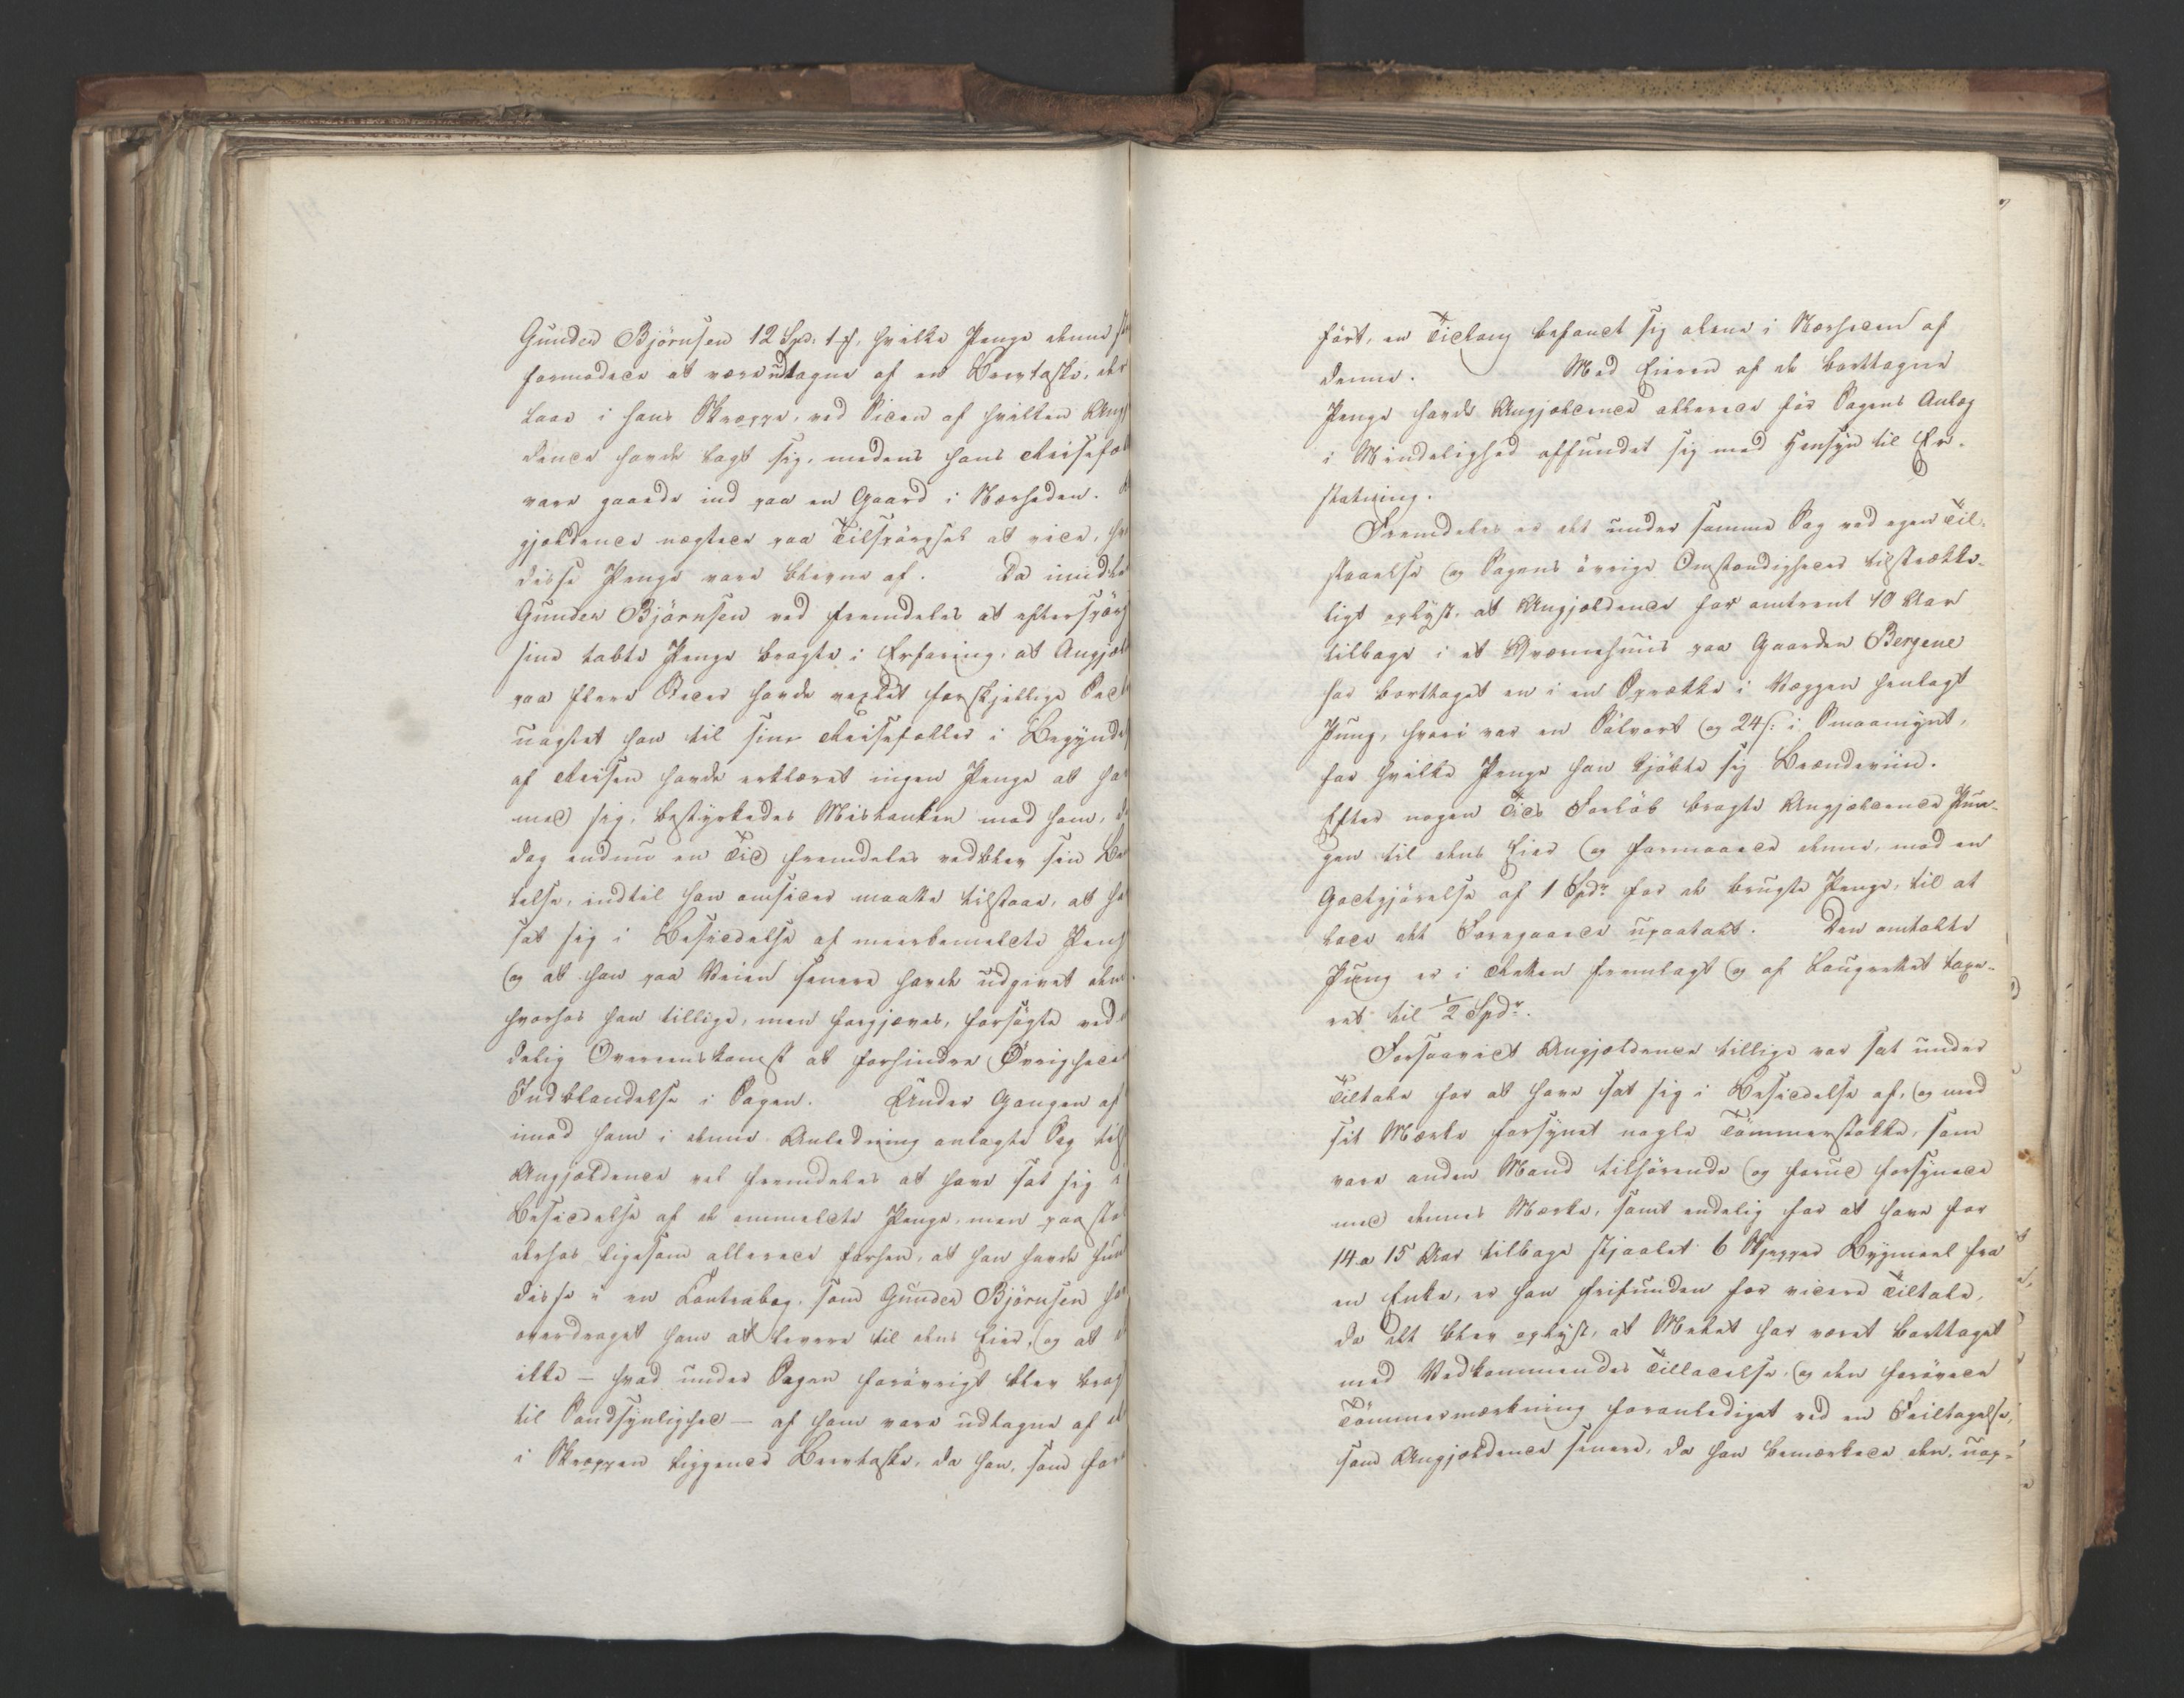 Gunder Björnsen 12 Spd. 1 ß, hvilke Penge denne
formodede at være udtagne af en Brevtaske, der
laae i hans Skreppe, ved Siden af hvilken Ang
dende havde lagt sig, medens hans Reisefæl
vare gaaede ind paa en Gaard i Nærheden.
gjældende nægtede paa Tilspörgsel at vide, hv
disse Penge vare blevne af. Da imidle
Gunder Björnsen ved fremdeles at efterspörg
sine tabte Penge bragte i Erfaring, at Angjæl
paa flere Steder havde vexlet forskjellige Sed
uagtet han til sine Reisefæller i Begyndel
af Reisen havde erklæret ingen Penge at ha
med sig, bestyrkedes Mistanken mod ham,
dog endnu en Tid fremdeles vedblev sin Be
telse, indtil han omsider maatte tilstaae, at ha
sat sig i Besiddelse af meerbemeldte Peng
og at han paa Veien senere havde udgivet dem
hvorhos han tillige, men forgjæves, forsögte ved
delig Overeenskomst at forhindre Övrighede
Indblandelse i Sagen. Under Gangen af
imod ham i denne Anledning anlagte Sag tils
Angjældende vel fremdeles at have sat sig i
Besiddelse af de ommeldte Penge, men paasto
derhos ligesom allerede forhen, at han havde fun
disse i en Contrabog, som Gunder Björnsen ha
overdraget ham at levere til dens Eier, og at
ikke – hvad under Sagen forövrigt blev brag
til Sandsynlighed – af ham vare udtagne af
i Skreppen liggende Brevtaske, da han, som for
fört, en Tidlang befandt sig alene i Nærheden af
denne. Med Eieren af de borttagne
Penge havde Angjældende allerede för Sagens Anlæg
i Mindelighed affundet sig med Hensyn til Er-
statning.
Fremdeles er det under samme Sag ved egen Til-
staaelse og Sagens övrige Omstændigheder tilstrække-
ligt oplyst, at Angjældende for omtrent 10 Aar
tilbage i et Qværnehuus paa Gaarden Bergene
har borttaget en i en Sprække i Væggen henlagt
Pung, hvori var en Sölvort og 24 ß: i Smaamynt,
for hvilke Penge han kjöbte sig Brændeviin.
Efter nogen Tids Forlöb bragte Angjældende Pun-
gen til dens Eier og formaaede denne, mod en
Godtgjörelse af 1 Spdr for de brugte Penge, til at
lade det Foregaaede upaatalt. Den omtalte
Pung er i Retten fremlagt og af Laugrettet taxe-
ret til 1/2 Spdr.
Forsaavidt Angjældende tillige var sat under
Tiltale for at have sat sig i Besiddelse af, og med
sit Mærke forsynet nogle Tömmerstokke, som
vare anden Mand tilhörende og forud forsynede
med dennes Mærke, samt endelig for at have for
14 a 15 Aar tilbage stjaalet 6 Skjepper Bygmeel fra
en Enke, er han frifunden for videre Tiltale,
da det blev oplyst, at Melet har været borttaget
med Vedkommendes Tilladelse, og den forövede
Tömmermærkning foranlediget ved en Feiltagelse,
som Angjældende senere, da han bemærkede den, uop-